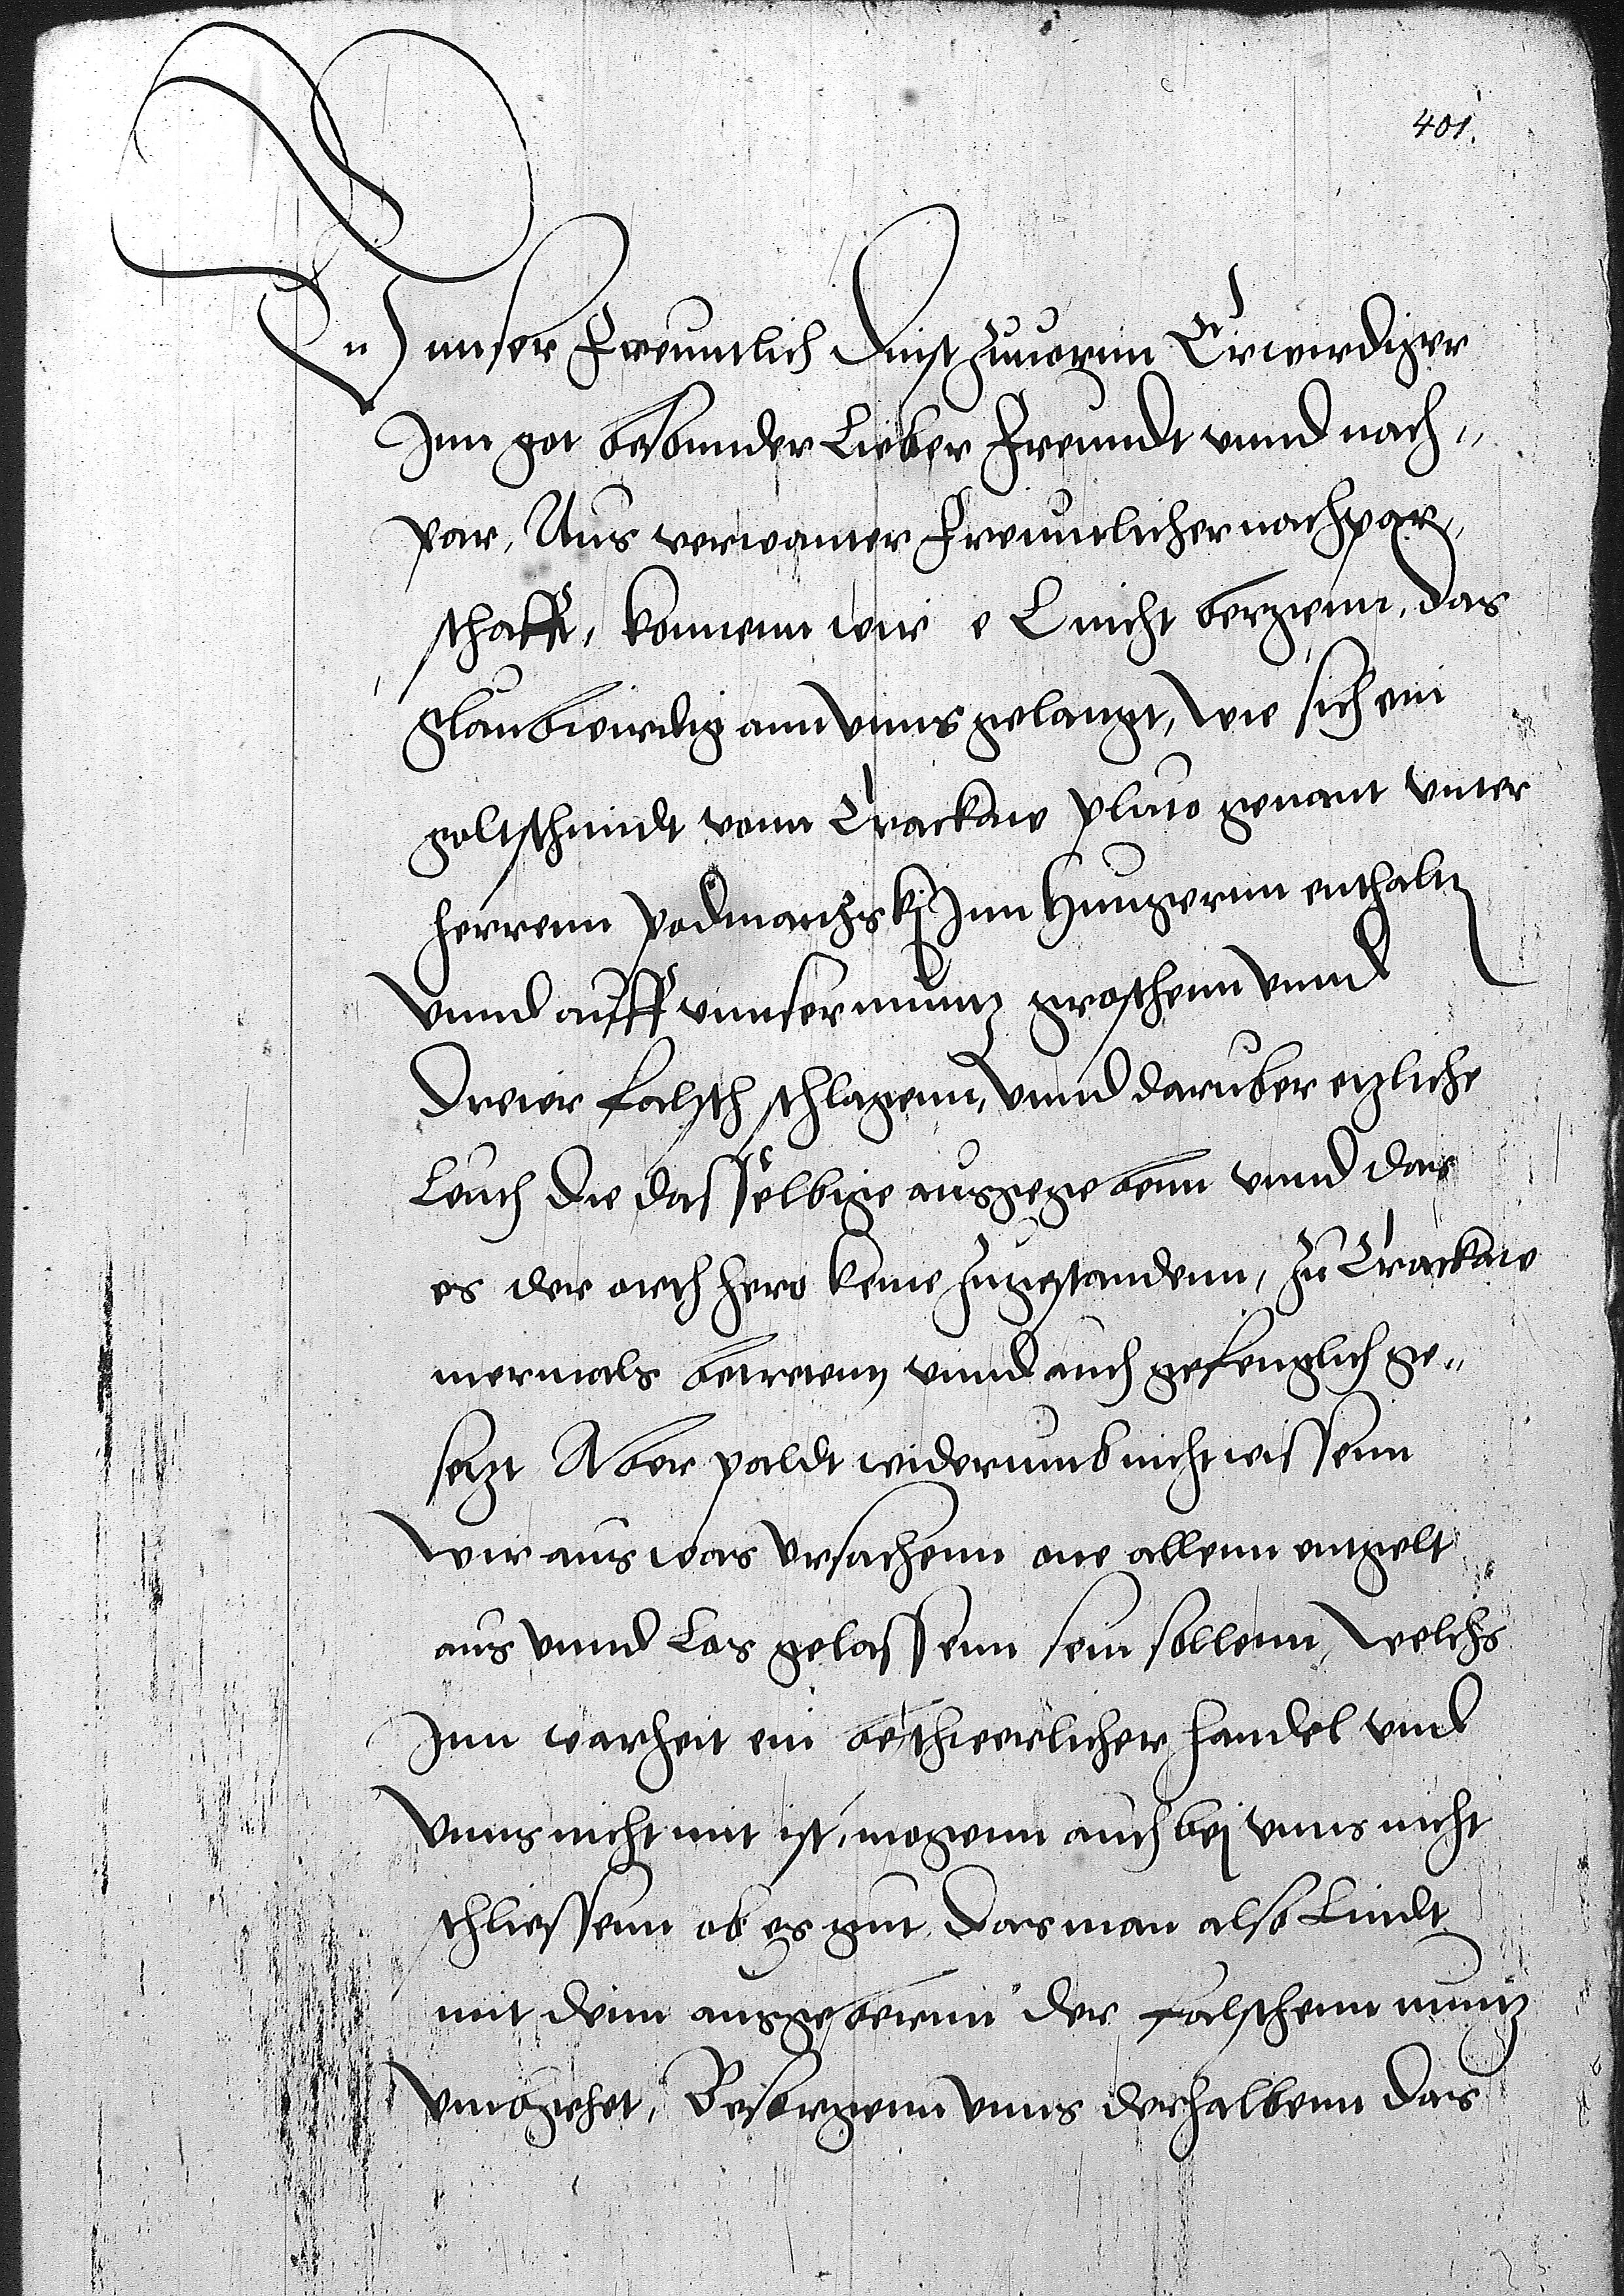 401.
Unnser Freuntlich Dinst zuuornn Erwirdiger
Inn got besonnder Lieber Freundt vnnd nach„
par, Aus verwanter Freuntlicher nachpar„
schafft, konnenn wir e L nicht bergenn, das
glaubwirdig ann vnns gelangt, wie sich ein
goltschmidt vonn Crackaw genant vnter
herrenn Podmanyzskj Inn Hungernn enthaltt
vnnd auff vnnser muntz groschenn vnnd
Dreier falsch schlagenn, vnnd daruber etzliche
Leuth die dasselbige ausgegebenn vnnd das
es der orth hero keme zugestandenn, zu Crackaw
mermals betretenn vnnd auch gefenglich ge„
setzt Aber paldt widerumb nicht wissenn
wir aus was vrsachenn one allenn entgelt
aus vnnd Los gelassenn sein sollenn, welchs
Inn warheit ein beschwerlicher handel vnd
vnns nicht mit ist, mogenn auch bej vnns nicht
schliessenn ob es gut, das man also Lindt
mit denn ausgebernn der falschenn muntz
vmbgehet, Besorgenn vnns derhalbenn das